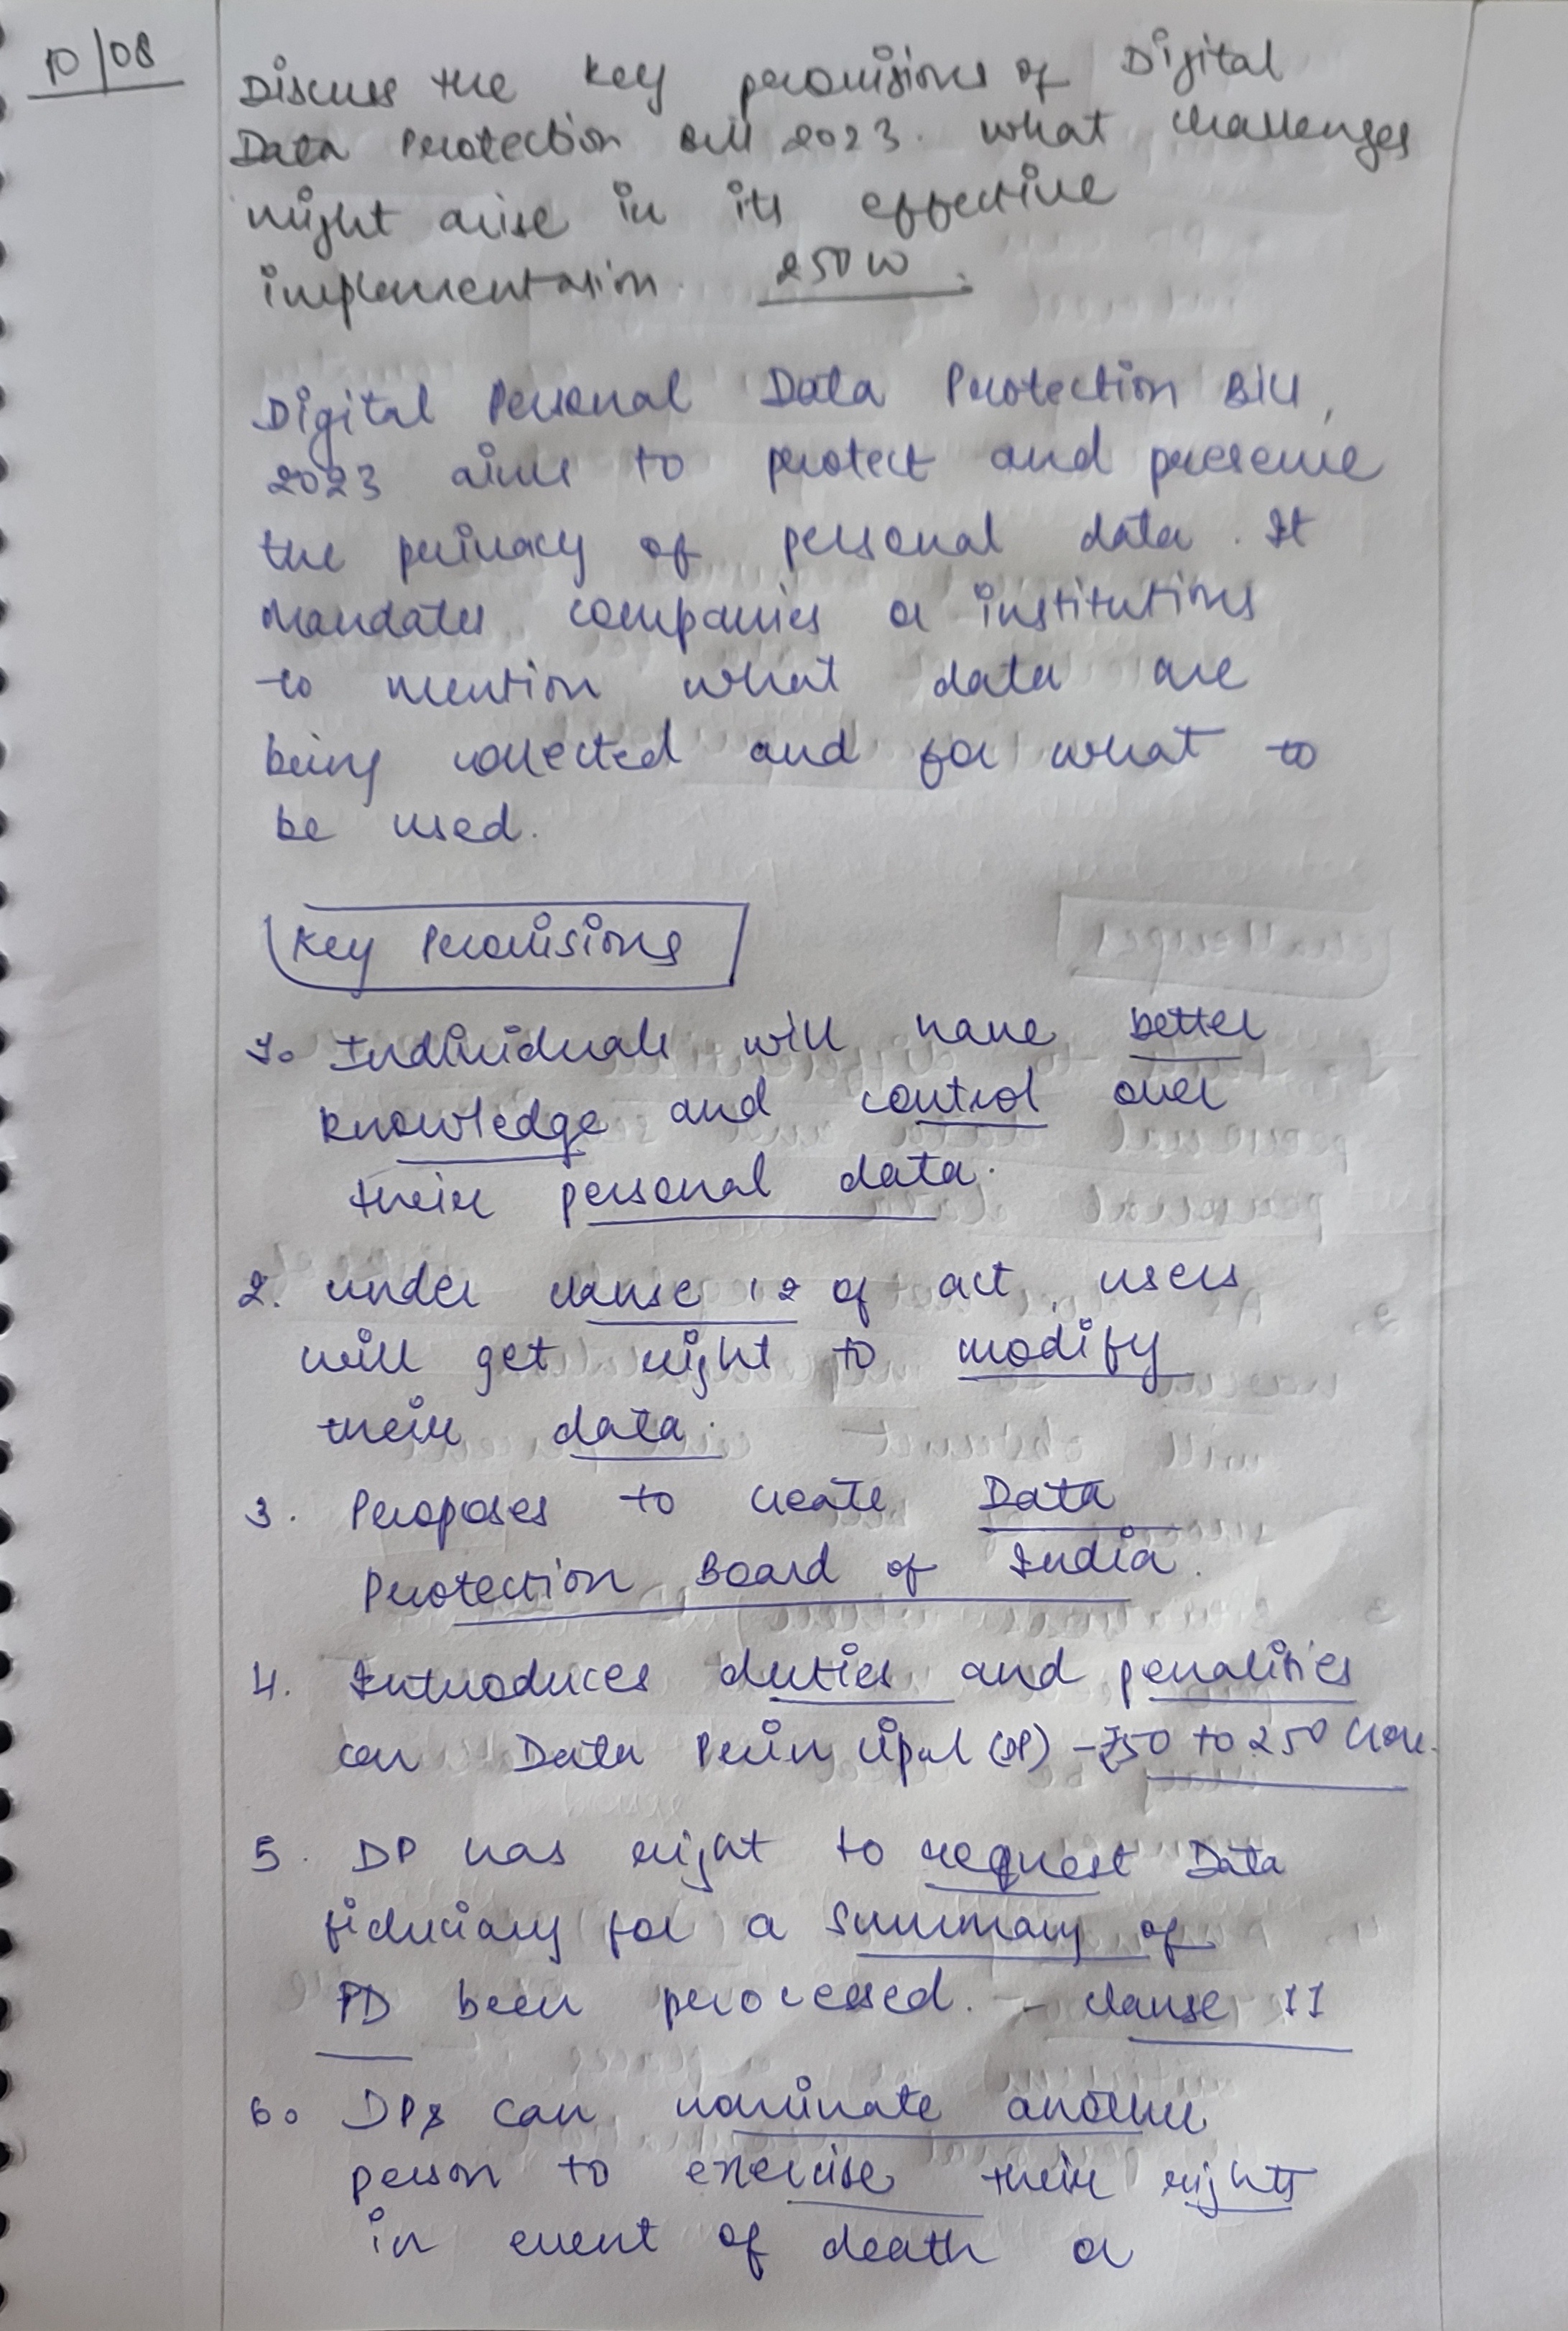 10/08
Discuss the key provisions of Digital
Data Protection Bill 2023. What challenges
might arise in its effective
implementation. 250 W.
Digital Personal Data Protection Bill,
2023 aims to protect and preserve
the privacy of personal data. It
mandates companies or institutions
to mention what data are
being collected and for what to
be used.
Key Provisions
1. Individuals will have better
knowledge and control over
their personal data.
2. under clause 12 of act, users
will get right to modify
their data.
3. Proposes to create Data
Protection Board of India.
4. Introduces duties and penalities
on Data Principal (DP) - ₹50 to 250 Crore.
5. DP has right to request Data
fiduciary for a summary of
PD been processed. - clause 11
6. DPs can nominate another
person to exercise their rights
in event of death or